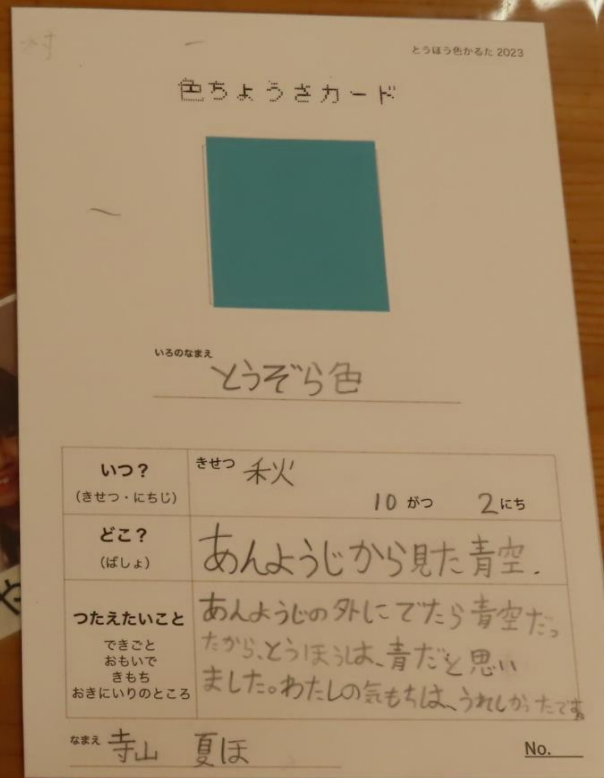 とうほう色かるた 2023
色ちょうさカード
いろのなまえ
とうぞら色
いつ？
(きせつ・にちじ)
きせつ 秋
10 がつ 2 にち
どこ？
(ばしょ)
あんようじから見た青空.
つたえたいこと
できごと
おもいで
きもち
おきにいりのところ
あんようじの外にでたら青空だっ
たから、とうほうは、青だと思い
ました。わたしの気もちは、うれしかったです。
なまえ 寺山 夏ほ
No.